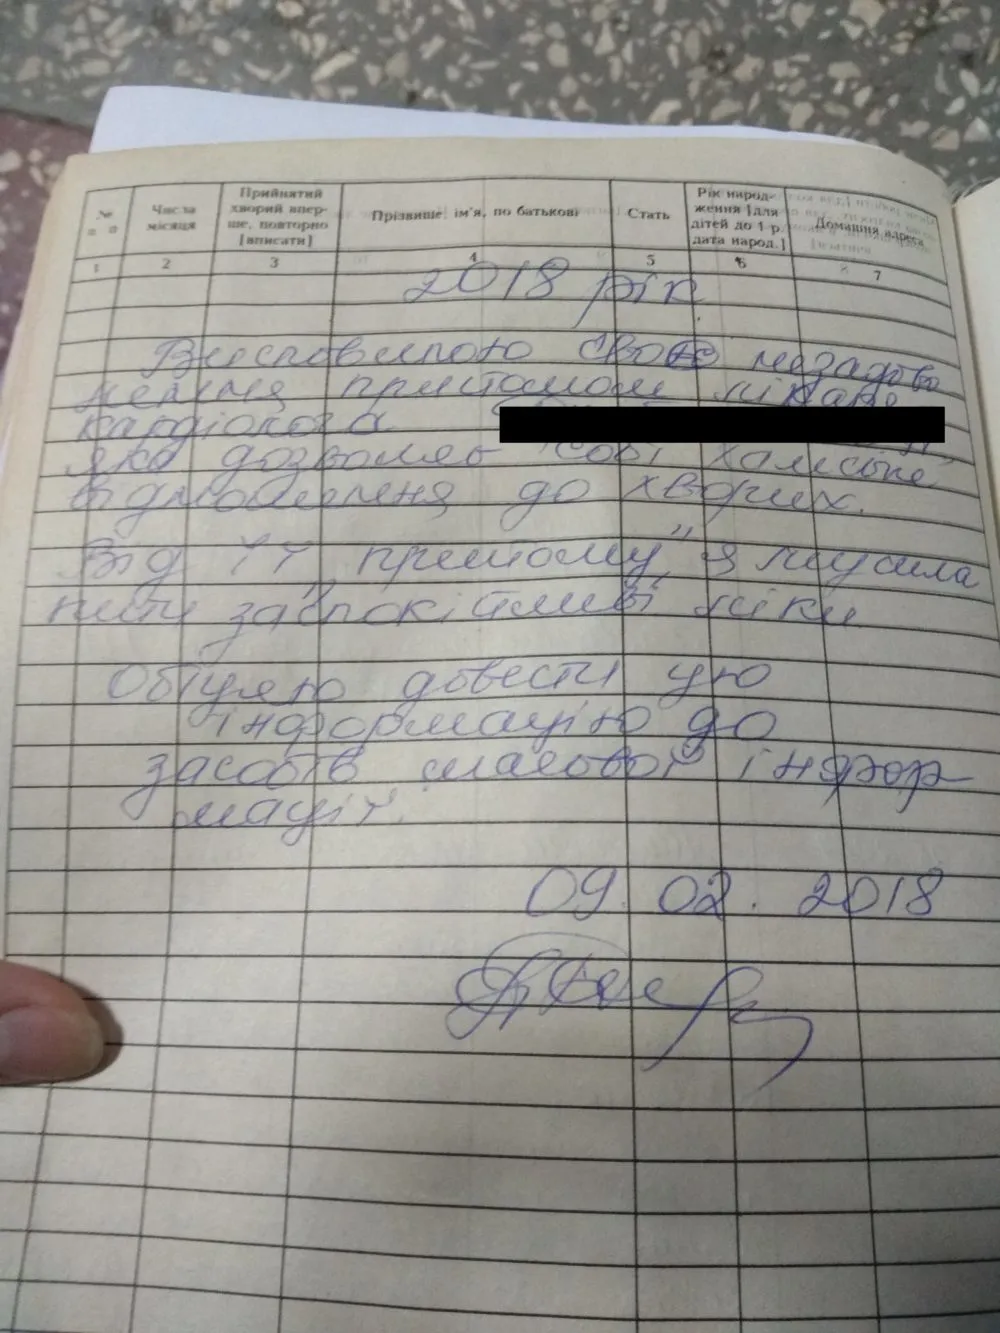 № п п
Числа місяця
Прийнятий хворий впер-ше, повторно [вписати]
Прізвище, ім'я, по батькові
Стать
Рік народ-ження [для дітей до 1 р. дата народ.]
Домашня адреса
1 2 3 4 5 6 7
2018 рік
Висловилюю своє незадово
лення прийомом лікаря
кардіолога
яка дозволяє собі хамське
відношення до хворих.
Від її "прийому" я мусила
пити заспокійливі ліки
Обіцяю довести цю
інформацію до
засобів масової інфор-
мації.
09. 02. 2018